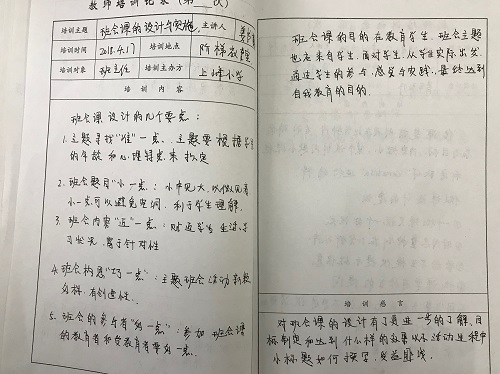 教师培训记录（第 次）
培训主题 班会课的设计与实施 主讲人
培训时间 2018.4.17 培训地点 阶梯教室
培训对象 班主任 培训主办方 上峰小学
培 训 内 容
班会课设计的几个要点：
1. 主题寻找"准"一点、主题要根据学生
的年龄和心理特点来拟定
2. 班会题目"小"一点：小中见大，以微见著
小一点可以避免空洞，利于学生理解
3. 班会内容"近"一点：贴近学生生活、学
习状况，富于针对性
4. 班会构思"巧一点"：主题班会活动形式
多样，有创造性.
5. 班会的参与者"多一点"：参加班会课
的教育者和受教育者要多一点.
班会课的目的在教育学生，班会主题
也应来自学生，面对学生，从学生实际出发
通过学生的参与、感受与实践，最终达到
自我教育的目的.
培 训 感 言
对班会课的设计有了更进一步的了解，目
标制定和达到什么样的效果以及活动过程中
小标题如何撰写，受益匪浅.